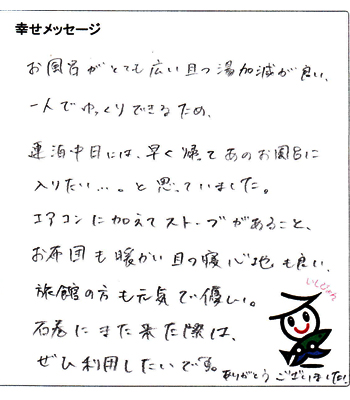 幸せメッセージ
お風呂がとても広い且つ湯加減が良い、
一人でゆっくりできるため、
連泊中日には、早く帰ってあのお風呂に
入りたい…。と思っていました。
エアコンに加えてストーブがあること、
お布団も暖かい且つ寝心地も良い、
旅館の方も元気で優しい。
石巻にまた来た際は、
ぜひ利用したいです。
ありがとうございました!